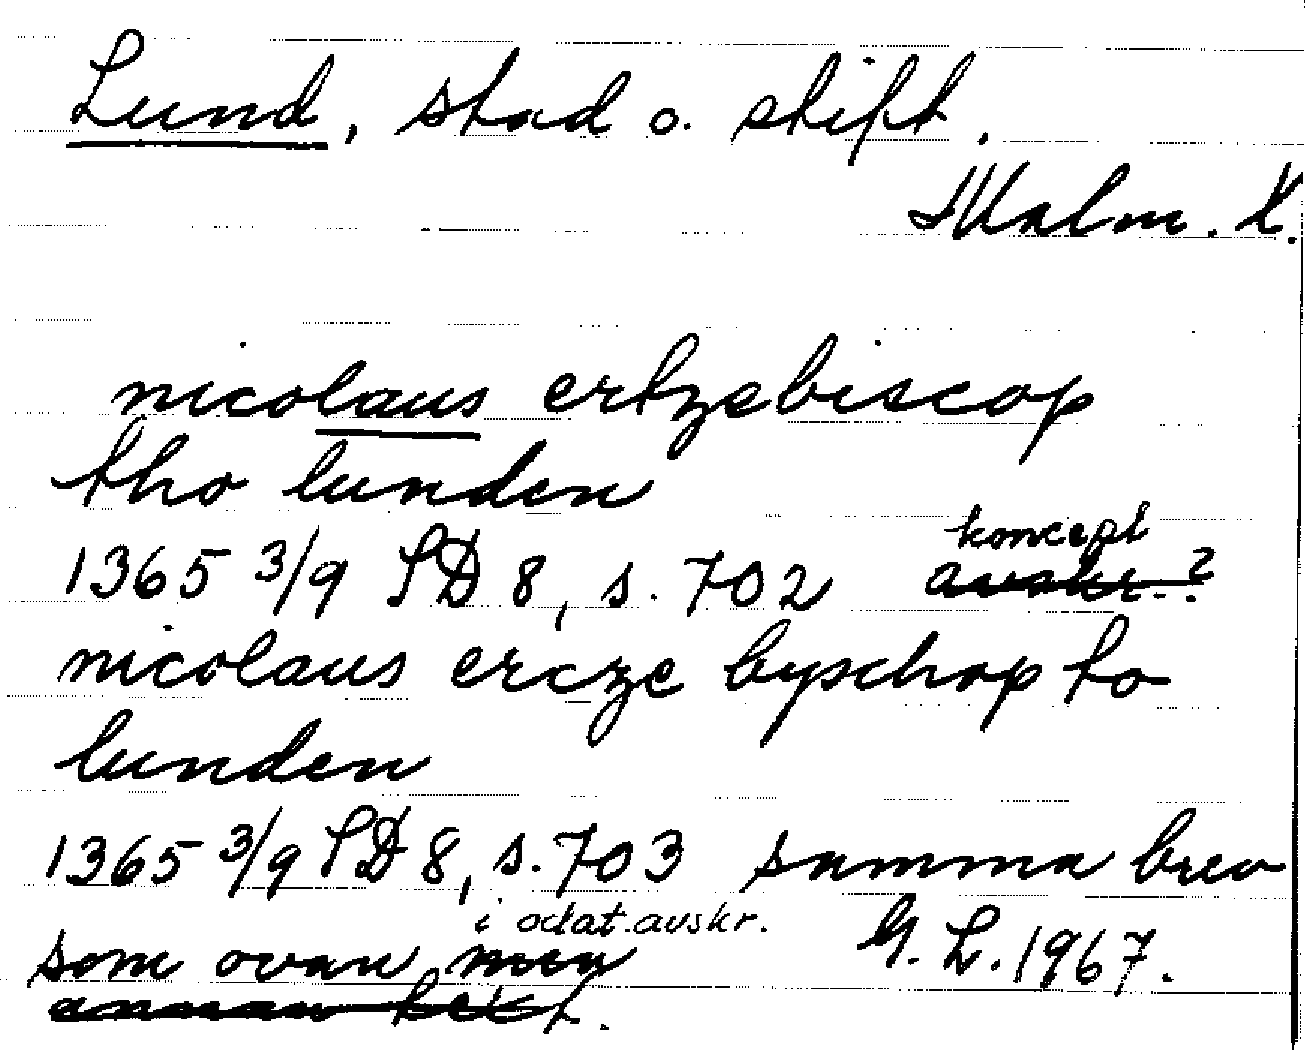 Lund, stad o. stift.
Malm. X.
nicolaus ertzebiscop
tho lunden
1365 3/9 SD 8, s. 702 koncept avskr.?
nicolaus ercze byschop to
lunden
1365 3/9 SD 8, s. 703 samma brev
i odat. avskr. G. L. 1967.
som ovan men
annan text.